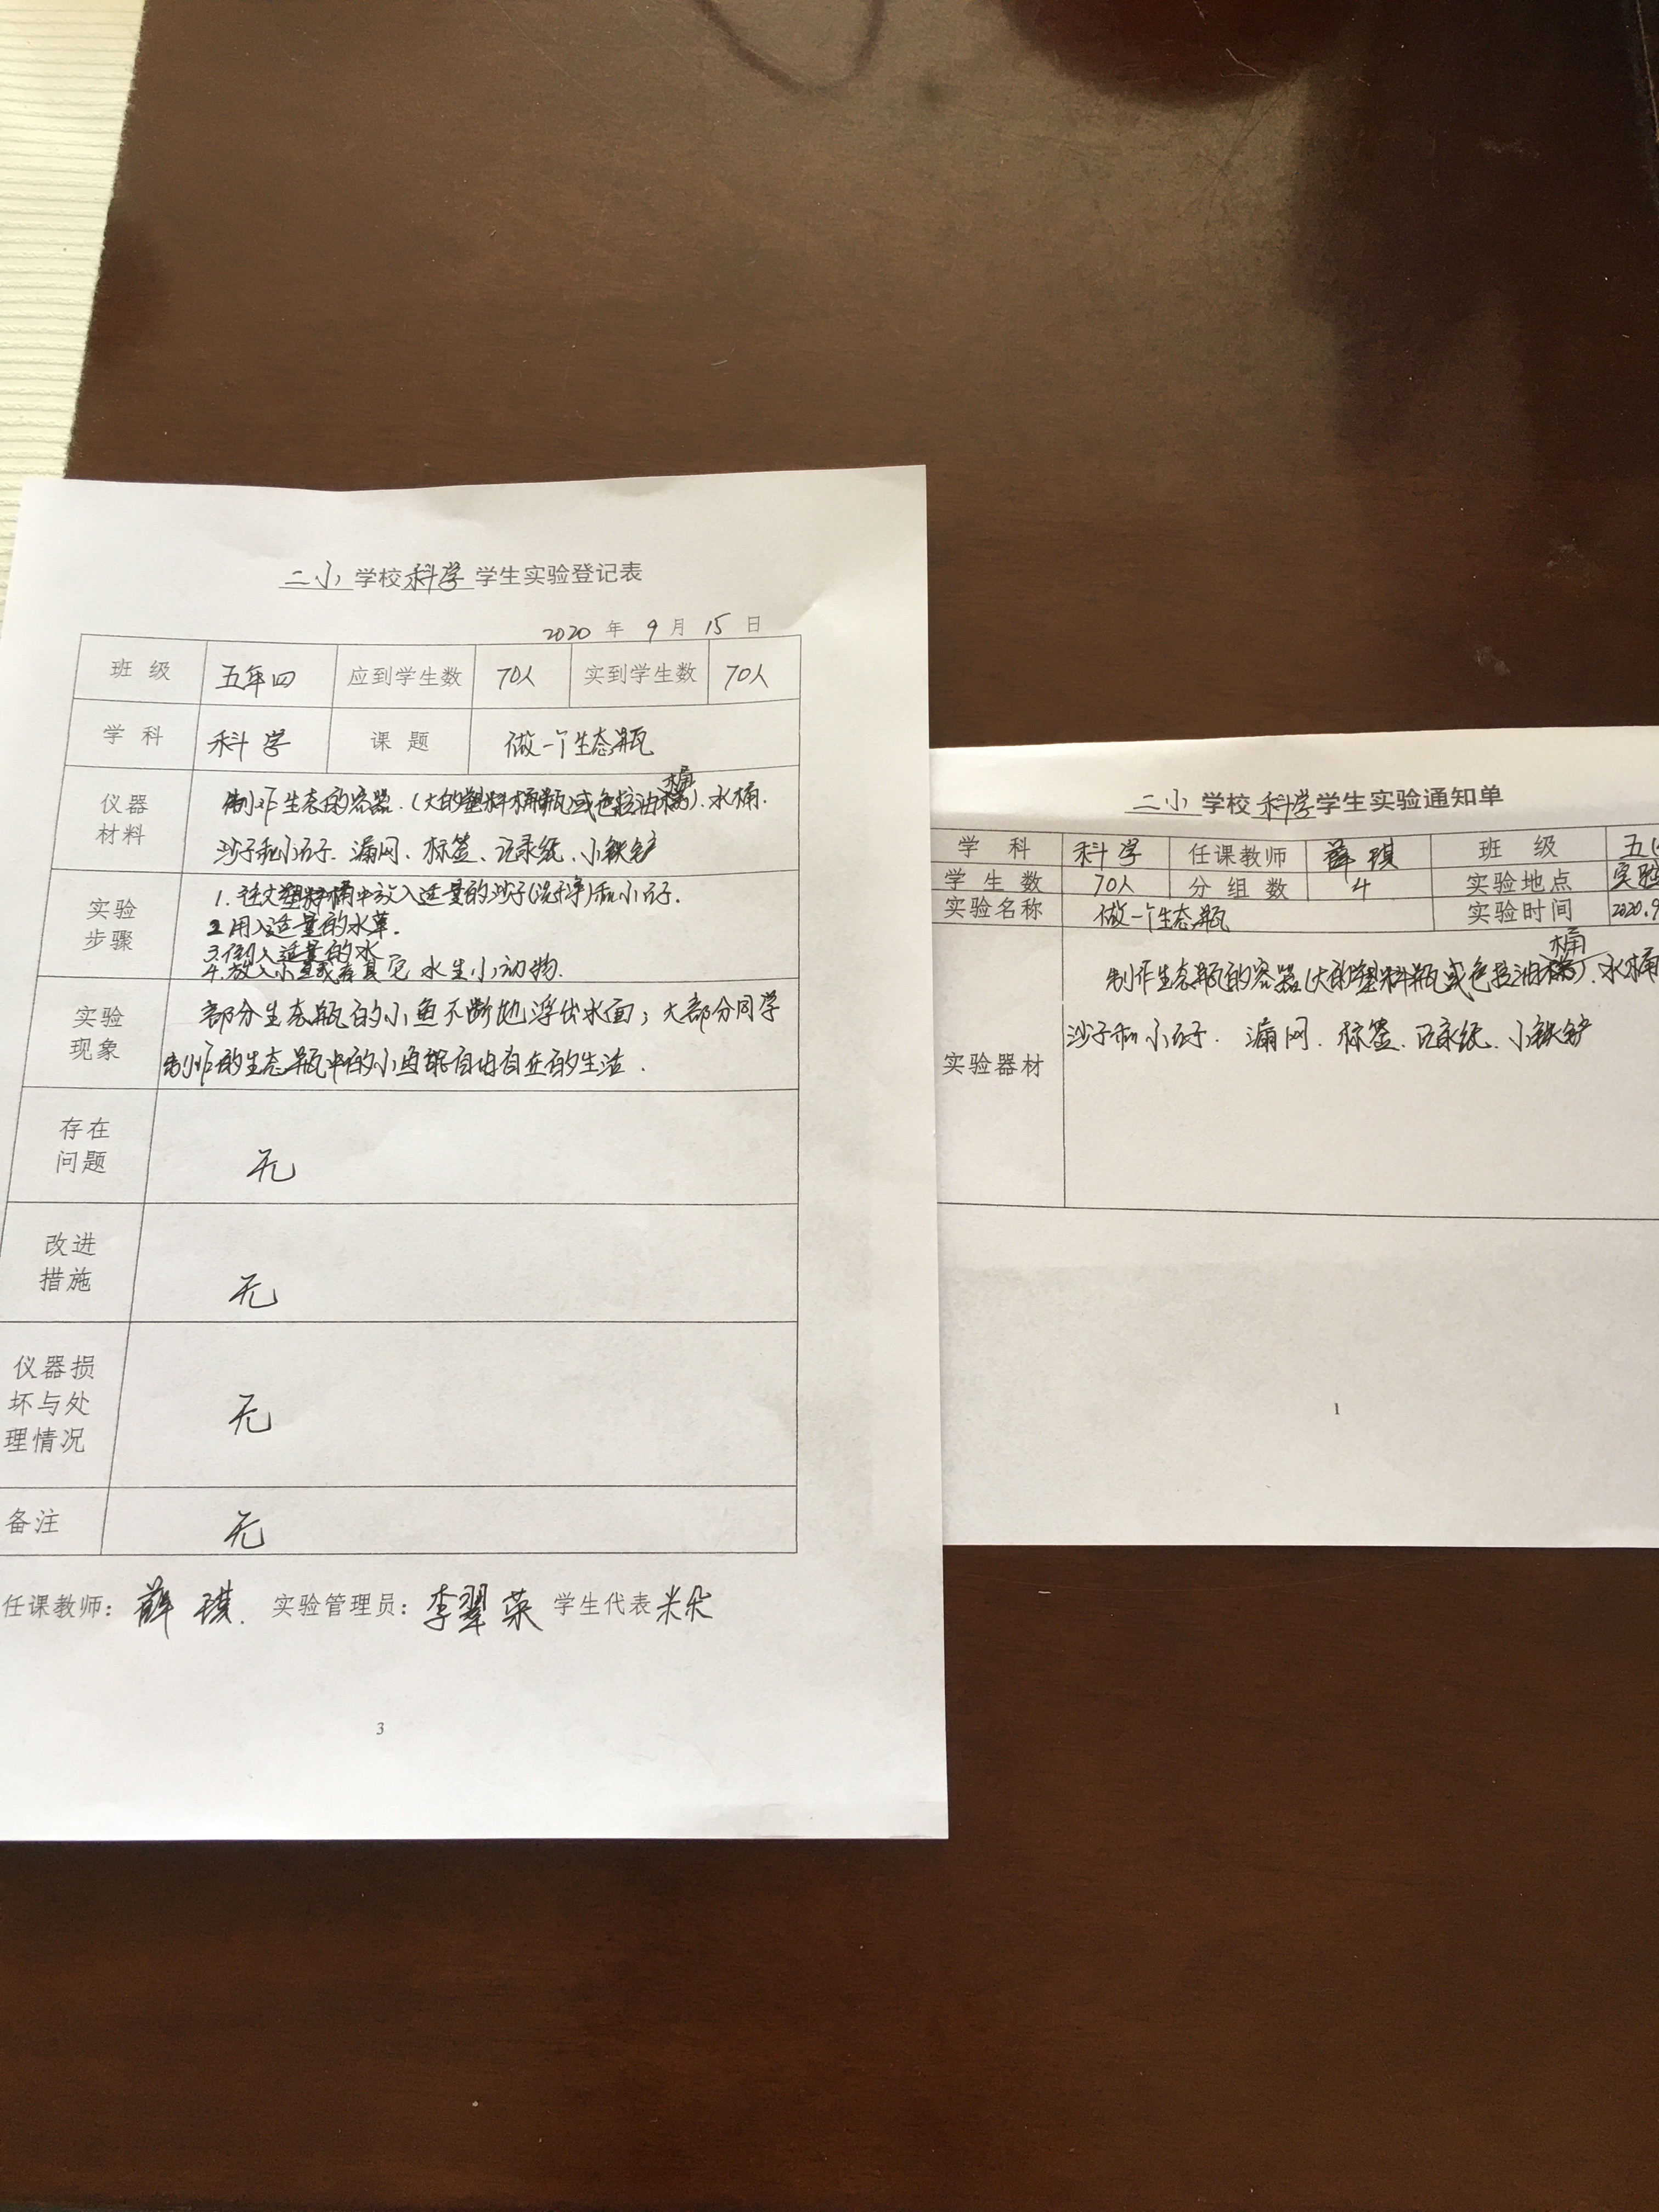 二小 学校 科学 学生实验登记表
2020 年 9 月 15 日
班 级 五年四 应到学生数 70人 实到学生数 70人
学 科 科学 课 题 做一个生态瓶
仪器
材料
制作生态的容器.(大的塑料桶瓶或色拉油桶).水桶.
沙子和小石子.漏网、标签、记录纸、小铁铲
实验
步骤
1.往大塑料桶中放入适量的沙子(洗净)和小石子.
2.用入适量的水草.
3.倒入适量的水
4.放入小鱼或者其它水生小动物.
实验
现象
部分生态瓶的小鱼不断地浮出水面;大部分同学
制作的生态瓶中的小鱼能自由自在的生活.
存在
问题
无
改进
措施
无
仪器损
坏与处
理情况
无
备注 无
任课教师: 薛琪. 实验管理员: 李翠荣 学生代表
3
二小 学校 科学 学生实验通知单
学 科 科学 任课教师 薛琪 班 级 五
学 生 数 70人 分 组 数 4 实验地点 实验
实验名称 做一个生态瓶 实验时间 2020.9
实验器材
制作生态瓶的容器(大的塑料瓶或色拉油桶).水桶
沙子和小石子.漏网.标签、记录纸、小铁铲
1